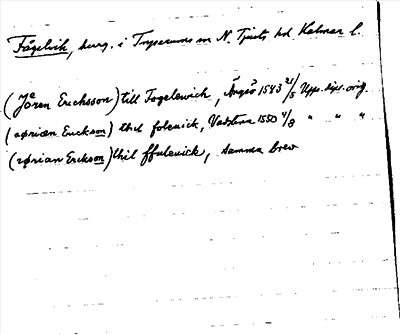 Fågelvik, herrg. i Tryserums sn N. Tjusts hd Kalmar l.
(Jören Erichsson) till Fogelewich, Ängsö 1543 21/5 Upps. dipl. orig.
(ørrian Erickson) thil folevick, Vadstena 1550 4/8 " " "
(ørrian Erickson) thil ffulevick, samma brev